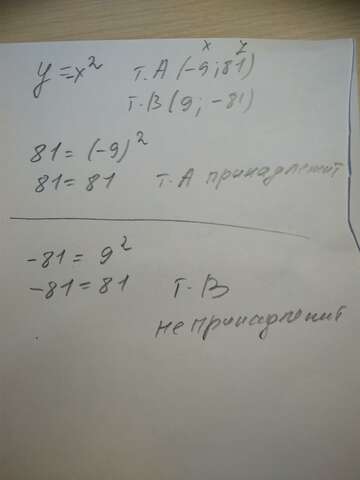 x y
y = x² т. А (-9; 81)
т. В (9; -81)
81 = (-9)²
81 = 81 т. А принадлежит
-81 = 9²
-81 = 81 т. В
не принадлежит